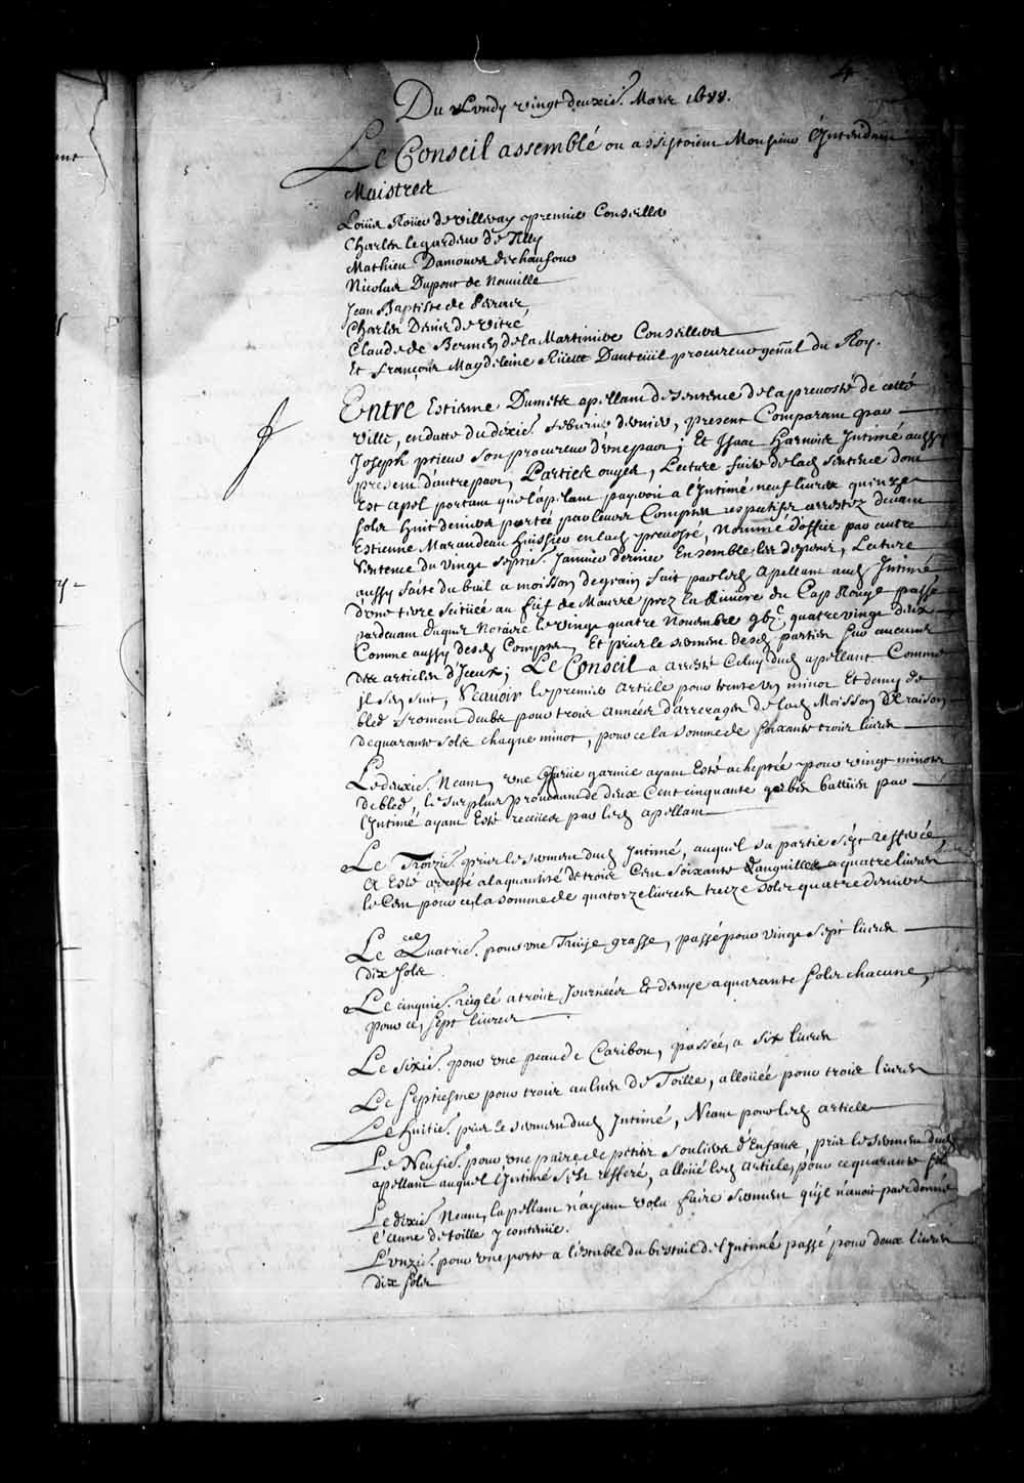 4
Du Lundy vingt deuxie. Mars 1688.
Le Conseil assemblé ou assistoient Monsieur l'Intendant
Maistres
Loüis Roüer de villeray premier Conseiller
Charles legardeur de Tilly
Mathieu Damours deschaufour
Nicolas Dupont de Neuuille
Jean Baptiste de Peiras
Charles Denis de Vitré
Claude de Bermen de la Martiniere Conseillers
Et françois Magdeleine Rüette Dauteüil procureur genãl du Roy.
Entre Estienne apellant de sentence de la preuosté de cette
ville, en datte du dixie. feburier dernier, present Comparant par
Joseph prieur son procureur d'vne part; Et Isaac Intimé aussy
present d'autre part, Parties ouyes, Lecture faite de lad. sentence dont
Est apel portant que l'apelant payeroit a l'Intimé neuf liures quinze
sols huit deniers portée par leurs Comptes respectifs arrestez deuant
Estienne Marandeau huissier en lad. preuosté, Nommé d'office par autre
Sentence du vingt septie. Januier dernier Ensemble les, Lecture
aussy faite du bail a moisson de grain fait par led. apellant aud. Intimé
d'vne terre scituée au fief de Maure prez la Riuiere du Cap Rouge passé
pardeuant Duquet Notaire le vingt quatre Nouembre gbc. quatre vingt deux
Comme aussy desd. Comptes, Et pris le serment desd. parties sur aucuns
des articles d'Iceux; Le Conseil a arresté Celuy dud. apellant Comme
Il s'en suit, Scauoir le premier article pour trente vn minot Et demy de
bled froment deubs pour trois années d'arrerages de lad. Moisson A raison
de quarante sols chaque minot, pour ce la somme de soixante trois liures
Le deuxie. Neant, vne garnie ayant Esté acheptée pour vingt minots
de bled, le surplus prouenant de deux Cent cinquante gerbes battües par
l'Intimé ayant Esté receües par led. apellant
Le Troizie. pris le serment dud. Intimé, auquel sa partie s'est refferée
A Esté arresté a la quantité de trois Cent Soixante d'anguilles a quatre liures
le Cent pour ce, la somme de quatorze liures treize sols quatre deniers
Le Quatrie. pour vne Truije grasse, passé pour vingt sept liures
dix sols
Le cinquie. reglé a trois Journées Et demye a quarante sols chacune,
pour ce, sept liures
Le sixie. pour vne peau de Caribou, passée, a six liures
Le septiesme pour trois aulnes de Toille, alloüée pour trois liures
Le huitie. pris le serment dud. Intimé, Neant pour led. article
Le Neufie. pour vne paire de petits souliers d'Enfant, pris le serment dud.
apellant auquel l'Intimé s'est refferé, alloüé led. article, pour ce quarante sols
Le dixie. Neant, l'apellant n'ayant volu faire serment qu'il n'auoit pas donné
l'aune de toille y contenüe.
L'onzie. pour vne porte a l'estable du bestail de l'Intimé passé pour deux liures
dix sols